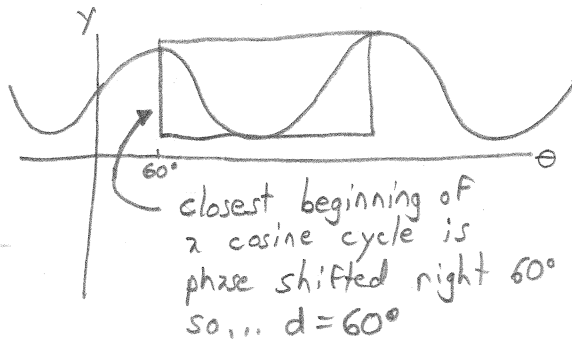 y
60°
θ
closest beginning of
a cosine cycle is
phase shifted right 60°
so,... d = 60°